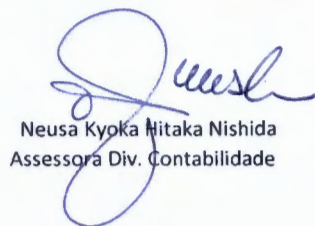 Neusa Kyoka Hitaka Nishida
Assessora Div. Contabilidade